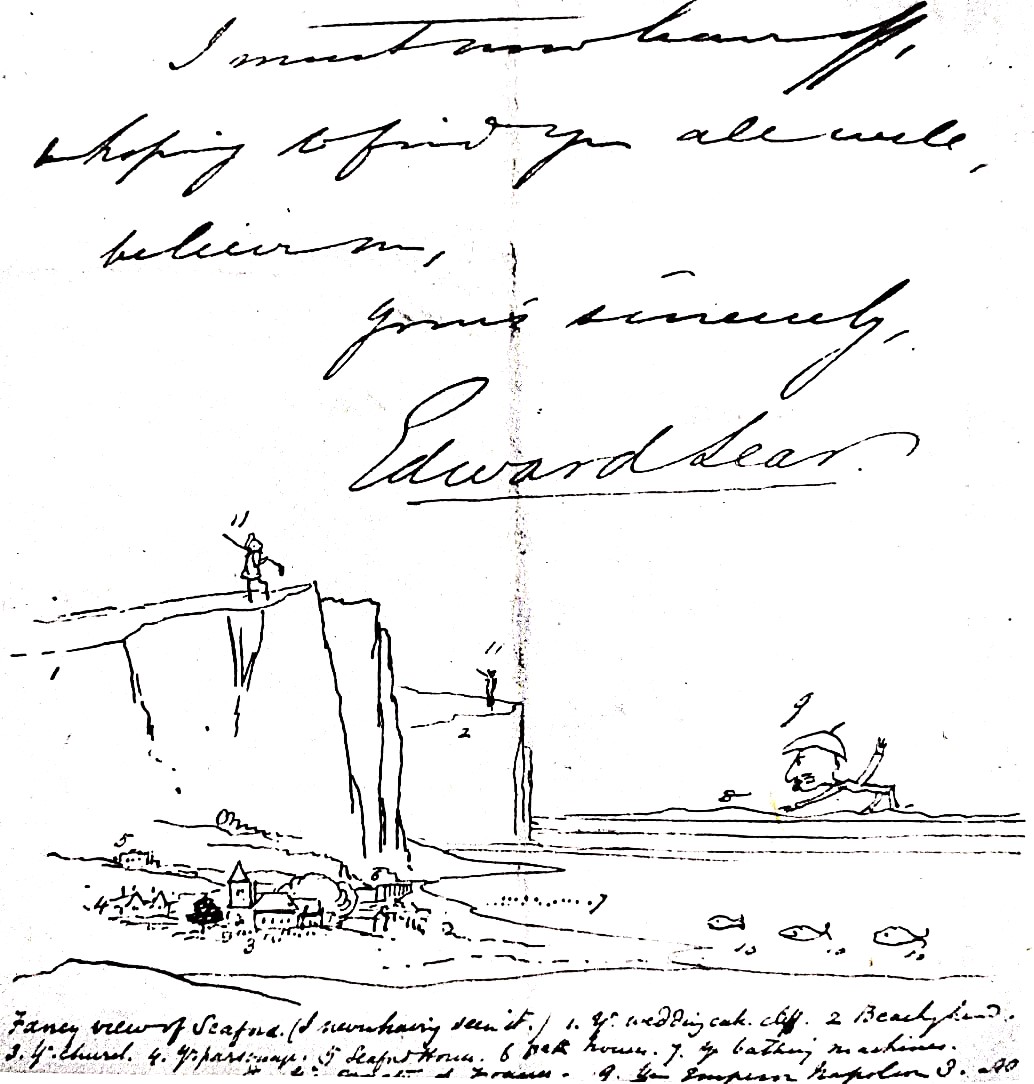 I must now leave off,
hoping to find you all well,
believe me,
Yours sincerely,
Edward Lear.
11
11
1
2
9
8
5
6
4
7
3
2
10 10 10
Fancy view of Seaford. (I never having seen it.) 1. Ye wedding cake cliff. 2 Beachy head.
3. Ye church. 4. Ye parsonage. 5 Seaford House. 6 houses. 7. Ye bathing machines.
coast of France. 9. Ye Emperor Napoleon 3.